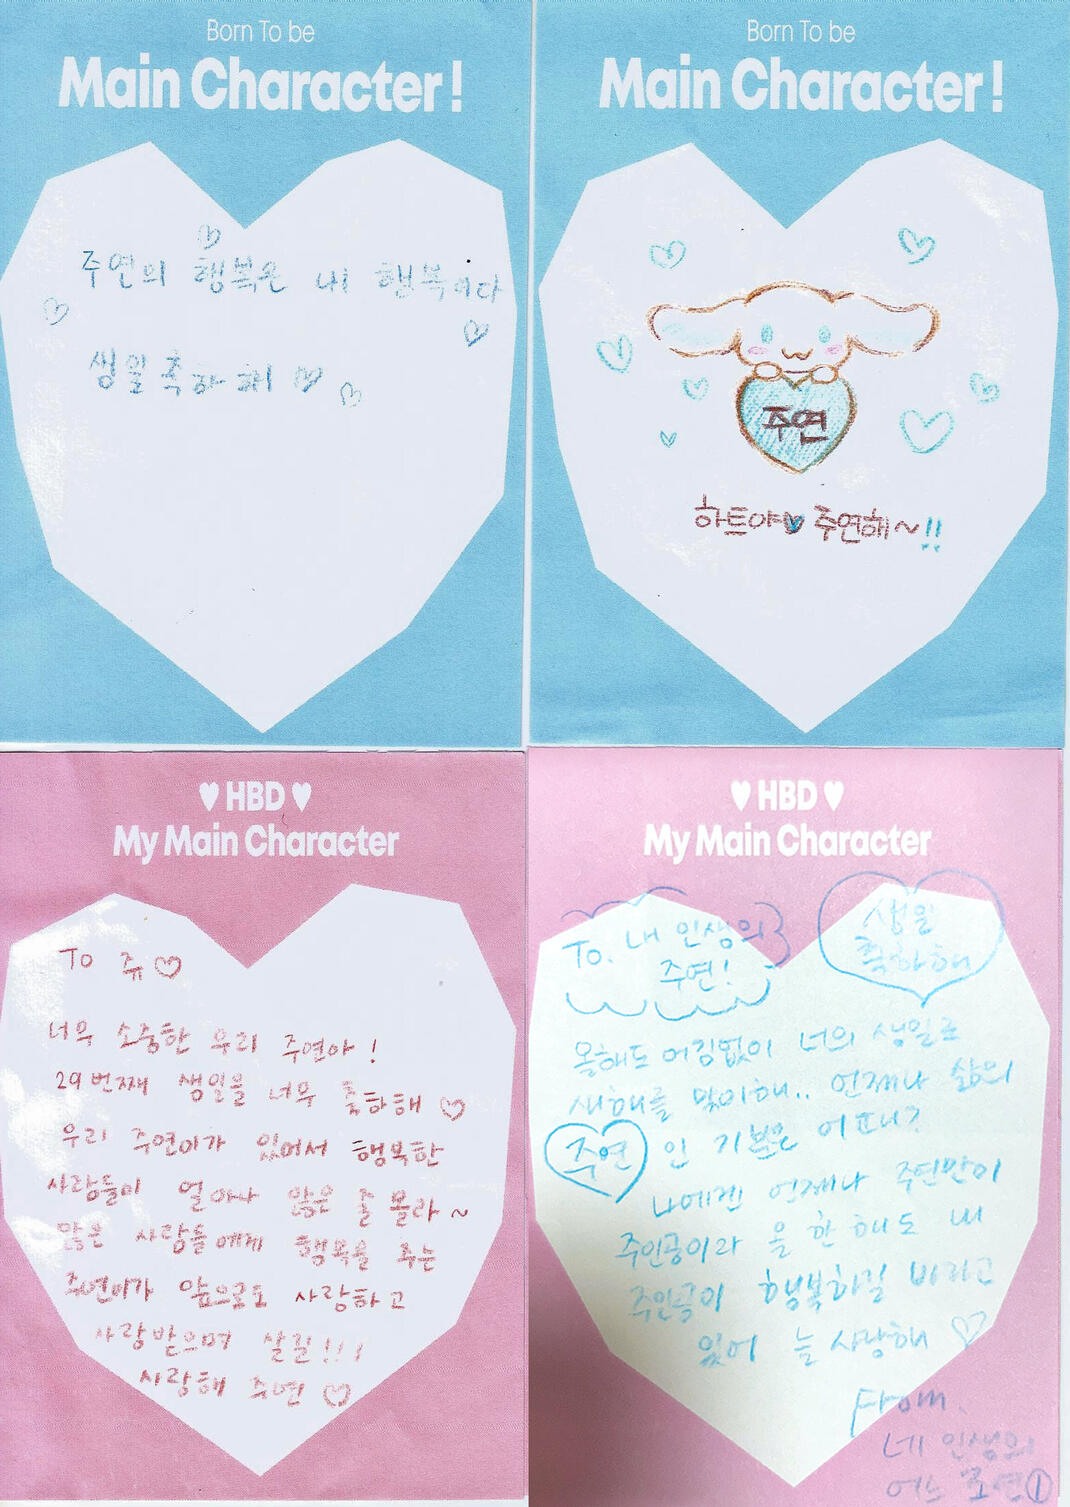 Born To be
Main Character!
주연의 행복은 내 행복이다
생일축하해
Born To be
Main Character!
주연
하트야 주연해~!!
♥ HBD ♥
My Main Character
To 쥬♡
너무 소중한 우리 주연아!
29번째 생일을 너무 축하해♡
우리 주연이가 있어서 행복한
사람들이 얼마나 많은 줄 몰라~
많은 사람들에게 행복을 주는
주연이가 앞으로도 사랑하고
사랑받으며 살길!!!
사랑해 주연♡
♥ HBD ♥
My Main Character
생일
축하해
To. 내 인생의
주연!
올해도 어김없이 너의 생일로
새해를 맞이해.. 언제나 삶의
주연 인 기분은 어때?
나에겐 언제나 주연만이
주인공이라 올 한 해도 내
주인공이 행복하길 바라고
있어 늘 사랑해♡
From.
네 인생의
조연①